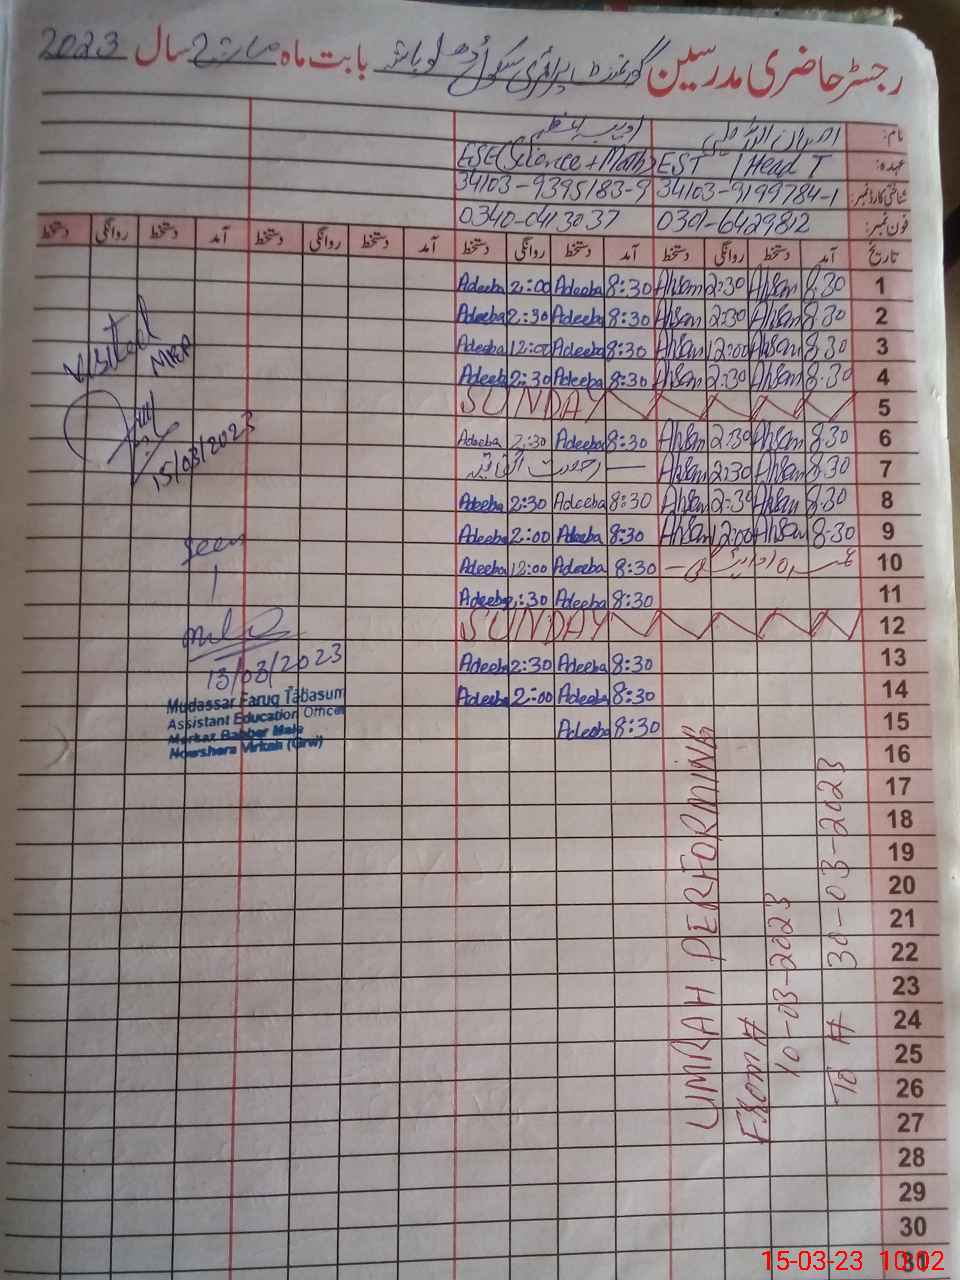 رجسٹر حاضری مدرسین گورنمنٹ پرائمری سکول بابت ماہ مارچ 2 سال 2023
نام:
عہدہ: EST / Head T ESE (Science + Math)
شناختی کارڈ نمبر: 34103-9199784-1 34103-9395183-9
فون نمبر: 0301-6429812 0340-0413037
تاریخ آمد دستخط روانگی دستخط آمد دستخط روانگی دستخط آمد دستخط روانگی دستخط آمد دستخط روانگی دستخط
1 8:30 Ahsan 2:30 Ahsan 8:30 Adeeba 2:00 Adeeba
2 8:30 Ahsan 2:30 Ahsan 8:30 Adeeba 2:30 Adeeba
3 8:30 Ahsan 12:00 Ahsan 8:30 Adeeba 12:00 Adeeba
4 8:30 Ahsan 2:30 Ahsan 8:30 Adeeba 2:30 Adeeba
5 SUNDAY
6 8:30 Ahsan 2:30 Ahsan 8:30 Adeeba 2:30 Adeeba
7 8:30 Ahsan 2:30 Ahsan رخصت اتفاقیہ
8 8:30 Ahsan 2:30 Ahsan 8:30 Adeeba 2:30 Adeeba
9 8:30 Ahsan 12:00 Ahsan 8:30 Adeeba 2:00 Adeeba
10 8:30 Adeeba 12:00 Adeeba
11 8:30 Adeeba :30 Adeeba
12 SUNDAY
13 8:30 Adeeba 2:30 Adeeba
14 8:30 Adeeba 2:00 Adeeba
15 8:30 Adeeba
16
17
18
19
20
21
22
23
24
25
26
27
28
29
30
31
UMRAH PERFORMING
From #
10-03-2023
To # 30-03-2023
Visited
MEA
15/03/2023
Seen
13/03/2023
Mudassar Faruq Tabasum
Assistant Education Officer
Markaz Babber Male
Nowshera Virkan (Grw)
15-03-23 10:02